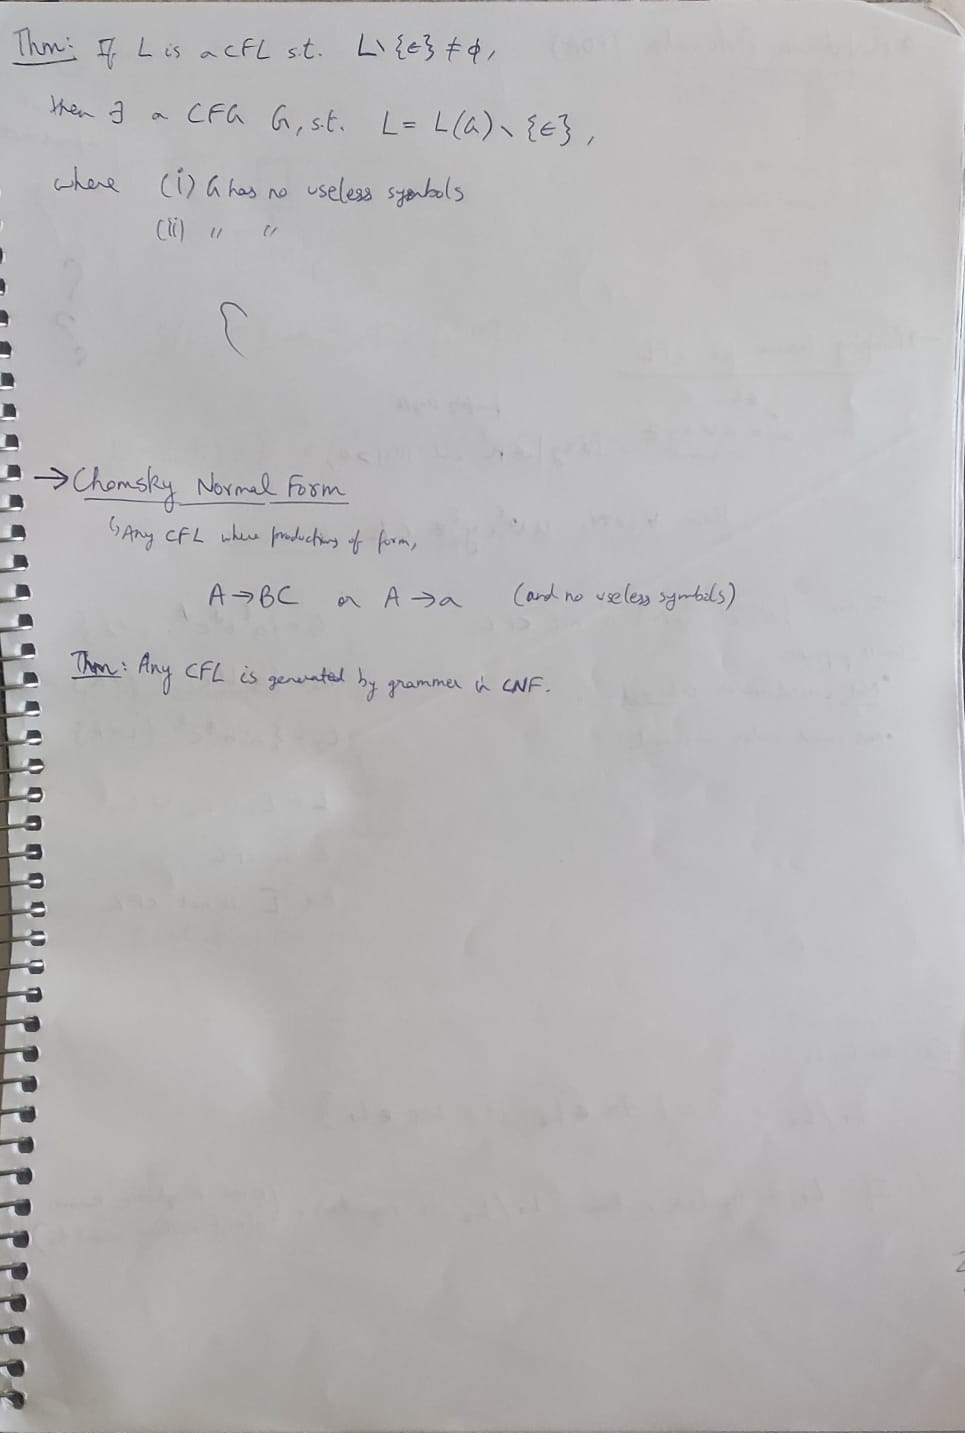 Thm: If L is a CFL s.t. L\{ϵ} ≠ ϕ,
then ∃ a CFG G, s.t. L = L(G)\{ϵ},
where (i) G has no useless symbols
(ii) " "
→ Chomsky Normal Form
↳ Any CFL where productions of form,
A→BC or A→a (and no useless symbols)
Thm: Any CFL is generated by grammer in CNF.